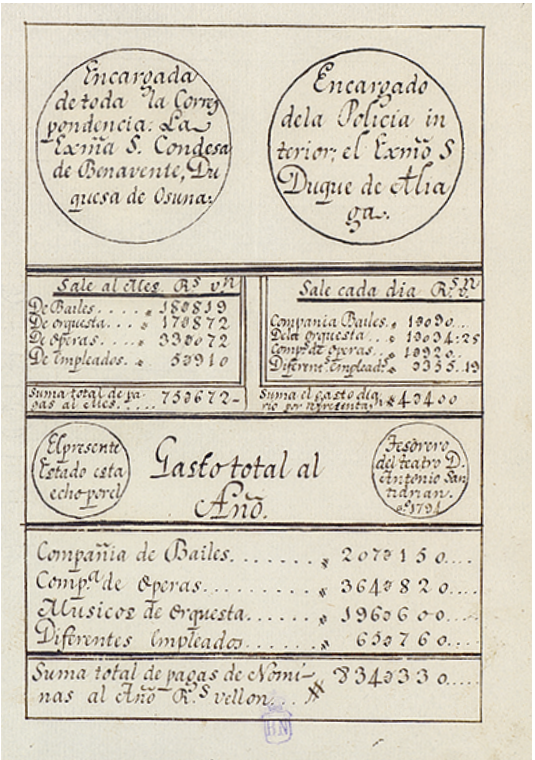 Encargada
de toda la Corres
pondencia: La
Exm̃a S. Condesa
de Benavente, Du
quesa de Osuna:
Encargado
dela Policia in
terior; el Exm̃o S
Duque de Alia
ga.
Sale al Mes R.s v.n
De Bailes.... „ 18ↄ819
De orquesta... „ 17ↄ872
De operas.... „ 33ↄ072
De Empleados. „ 5ↄ910
Suma total de pa-
gas al Mes.... 75ↄ672-
Sale cada dia R.s v.n
Compania Bailes. „ 1ↄ090....
Dela orquesta .. „ 1ↄ034:25
Comp.a de operas. „ 1ↄ920..
Diferen.s Emplead.s „ ↄ355.19
Suma el gasto dia
rio por representa.n „ 4ↄ400
El presente
Estado esta
echo por el
Gasto total al
Año.
Tesorero
del teatro D.
Antonio San
tidrian.
a.s 1794
Compañia de Bailes....... „ 207ↄ150....
Comp.a de operas......... „ 364ↄ820....
Musicos de orquesta...... „ 196ↄ600....
Diferentes Empleados..... „ 65ↄ760....
Suma total de pagas de Nomi-
nas al Año R.s vellon... „ 834ↄ330.....
BN